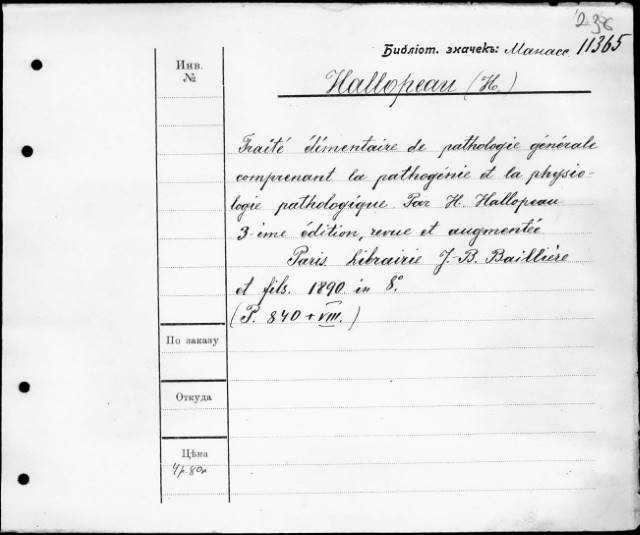 236
Библіот. значекъ: Манасс. 11365
Инв.
№
Hallopeau (H.)
Traité élémentaire de pathologie générale
comprenant la pathogénie et la physio-
logie pathologique. Par H. Hallopeau
3-ème édition, revue et augmentée
Paris. Librairie J.-B. Baillière
et fils. 1890. in 8.°
(P. 840 + VIII.)
По заказу
Откуда
Цѣна
4р. 80к